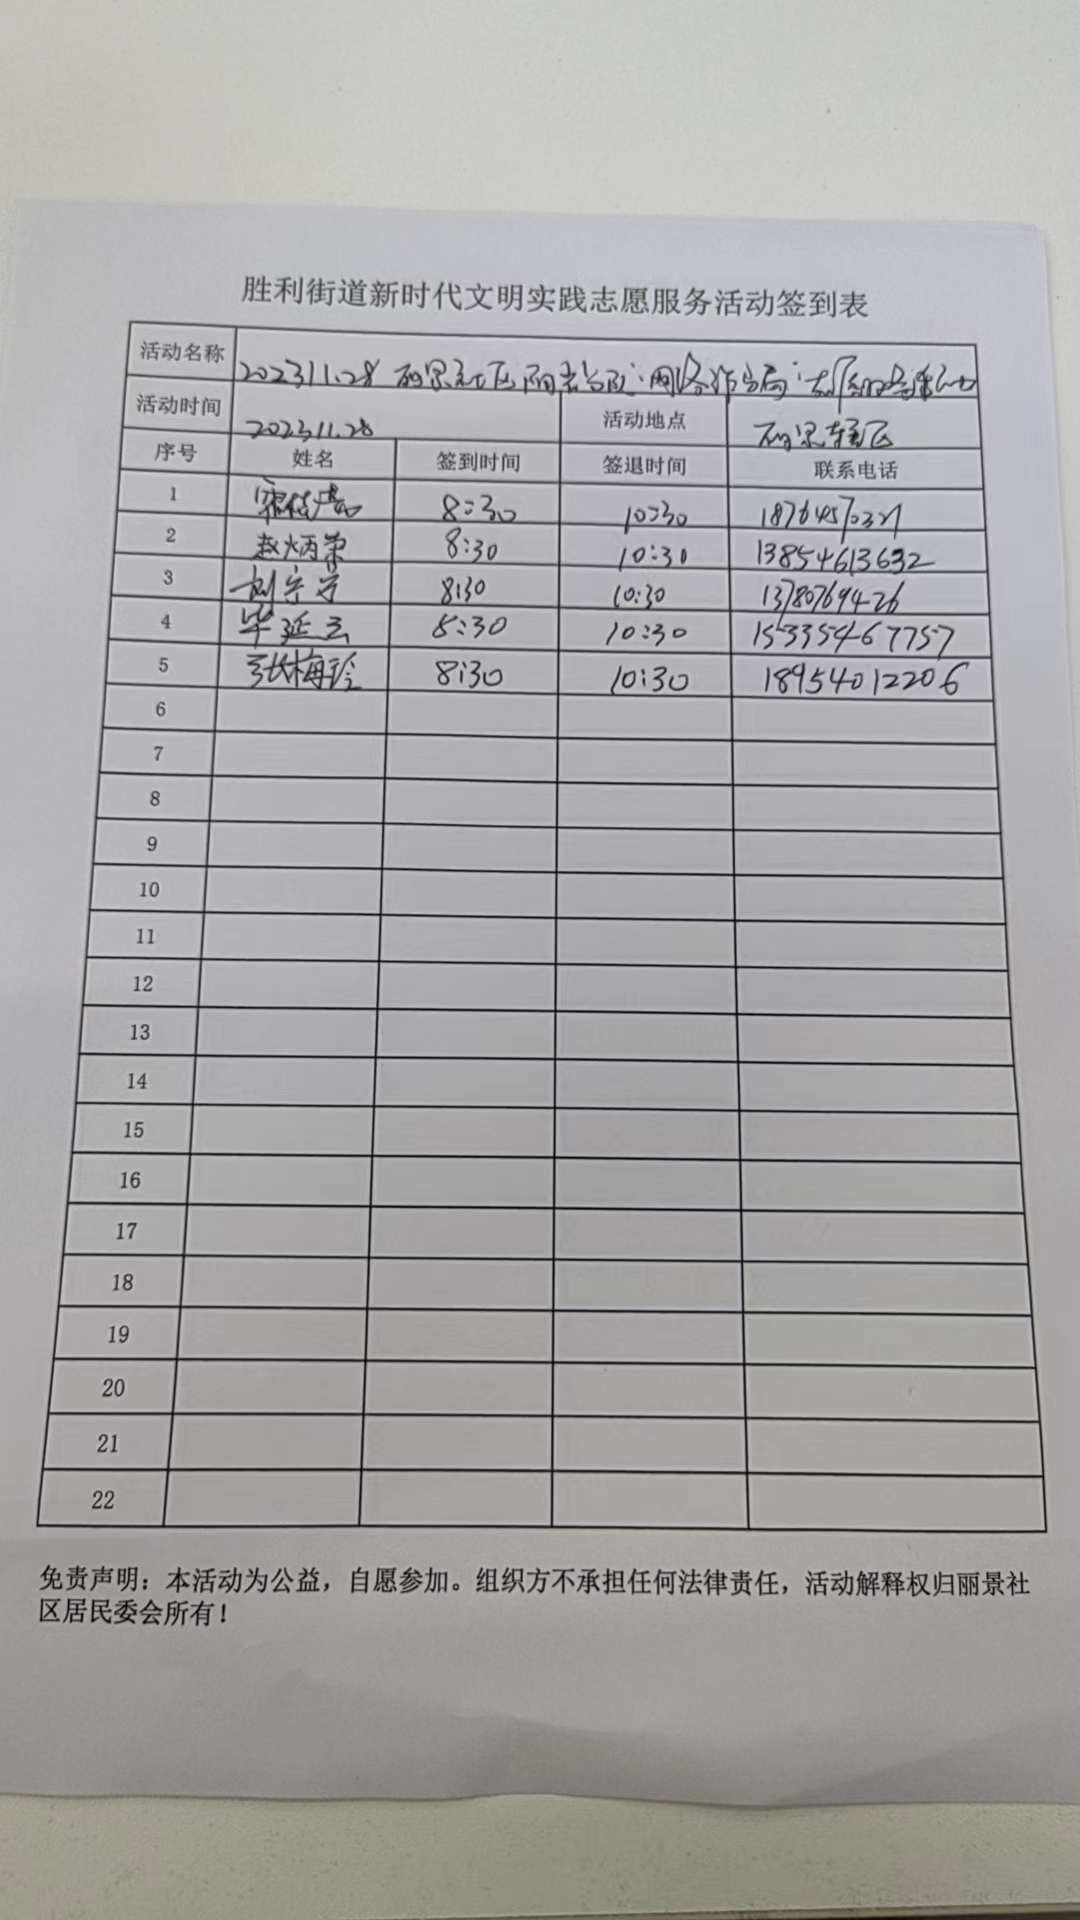 胜利街道新时代文明实践志愿服务活动签到表
活动名称 20231128 丽景社区
活动时间 20231128 活动地点 丽景辖区
序号 姓名 签到时间 签退时间 联系电话
1 8:30 10:30
2 赵炳荣 8:30 10:30 13854613632
3 刘宁宁 8:30 10:30 13780769426
4 毕延云 8:30 10:30 15335467757
5 张梅玲 8:30 10:30 18954012206
6
7
8
9
10
11
12
13
14
15
16
17
18
19
20
21
22
免责声明：本活动为公益，自愿参加。组织方不承担任何法律责任，活动解释权归丽景社
区居民委会所有！